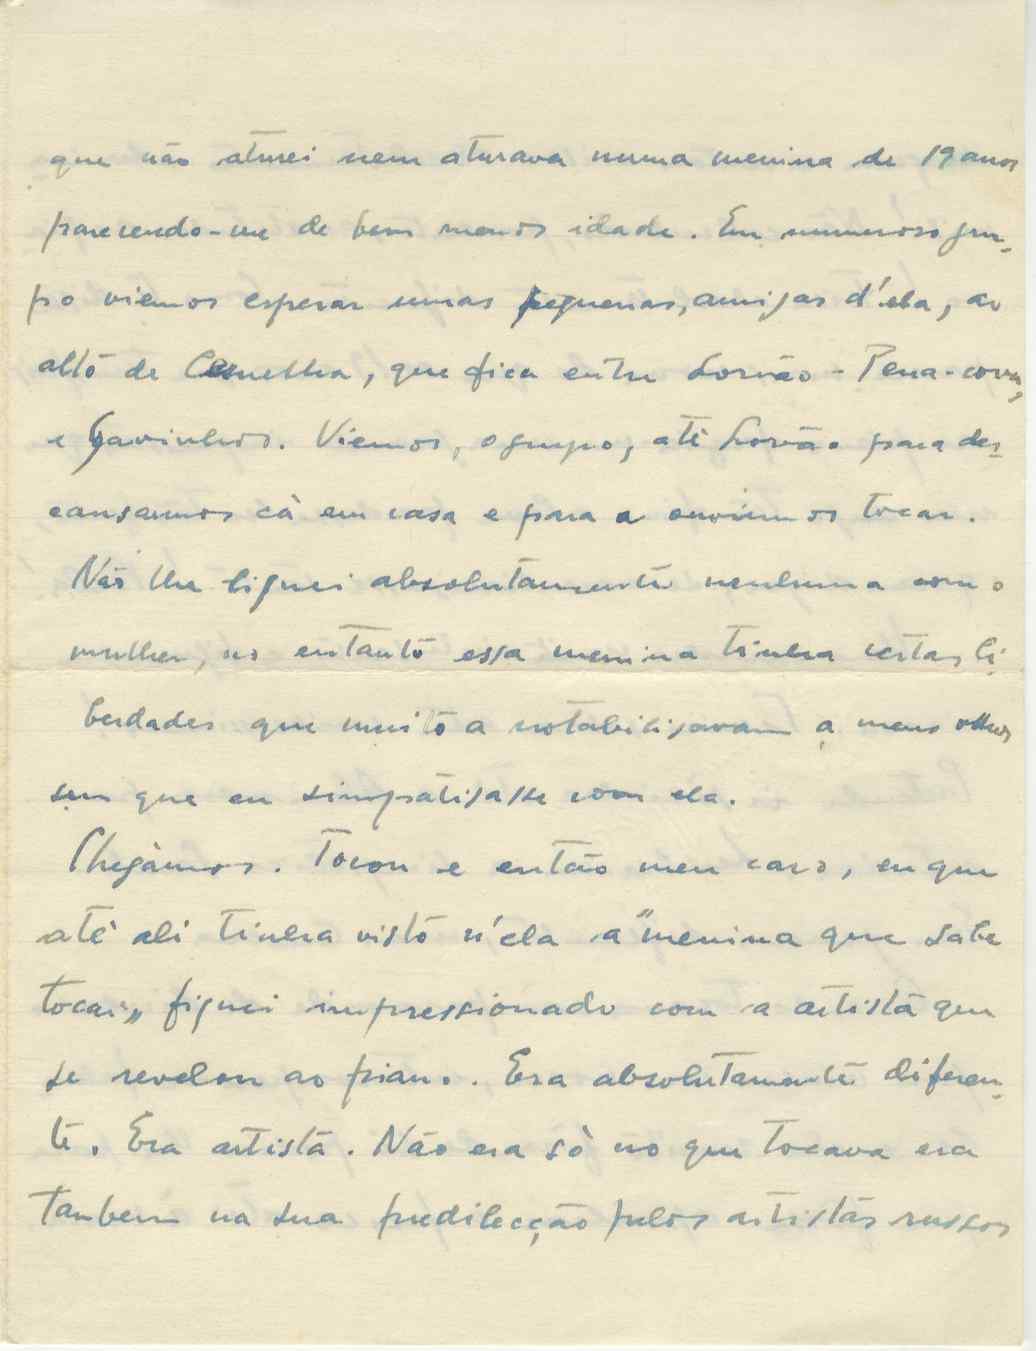 que não aturei nem aturava numa menina de 19 anos
parecendo-me de bem menos idade. Em numeroso gru-
po viemos esperar umas pequenas, amigas d'ela, ao
alto de , que fica entre Lorvão - Pena-cova,
e Gavinhos. Viemos, o grupo, até Lorvão para des-
cansarmos cà em casa e para a ouvirmos tocar.
Não lhe liguei absolutamente nenhuma como
mulher, no entanto essa menina tinha certas li-
berdades que muito a notabilisavam a meus olhos
sem que eu simpatisasse com ela.
Chegàmos. Tocou e então meu caro, eu que
atè ali tinha visto n'ela a "menina que sabe
tocar„ fiquei impressionado com a artista que
se revelou ao piano. Era absolutamente diferen-
te. Era artista. Não era sò no que tocava era
tambem na sua predilecção pelos artistas russos